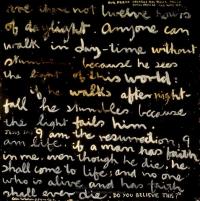 are there not twelve hours
of daylight. Anyone can
walk in day-time without
stumbling because he sees
the light of this world:
if he walks after night-
fall he stumbles because
the light fails him
I am the resurrection, I
am life. if a man has faith
in me, even though he die, he
shall come to life; and no one
who is alive and has faith
shall ever die. DO YOU BELIEVE THIS?